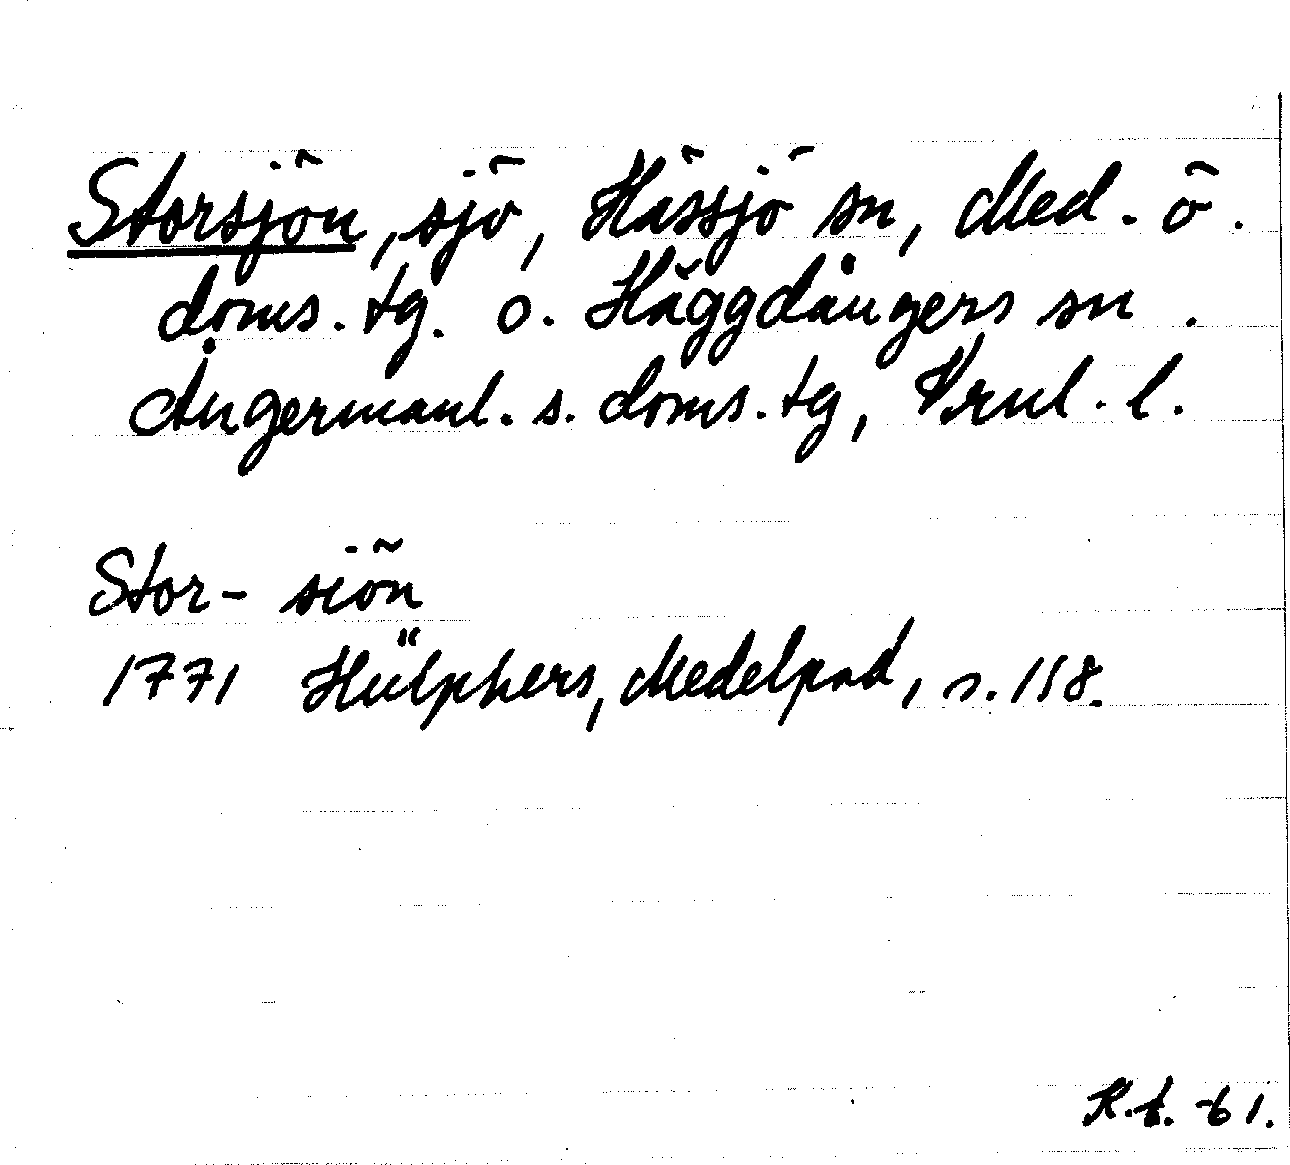 Storsjön, sjö, Hässjö sn, Med. ö.
doms. tg. o. Häggdångers sn.
Ångermanl. s. doms. tg, Vrnl. l.
Stor- siön
1771 Hülphers, Medelpad, s. 158.
K.t. -61.